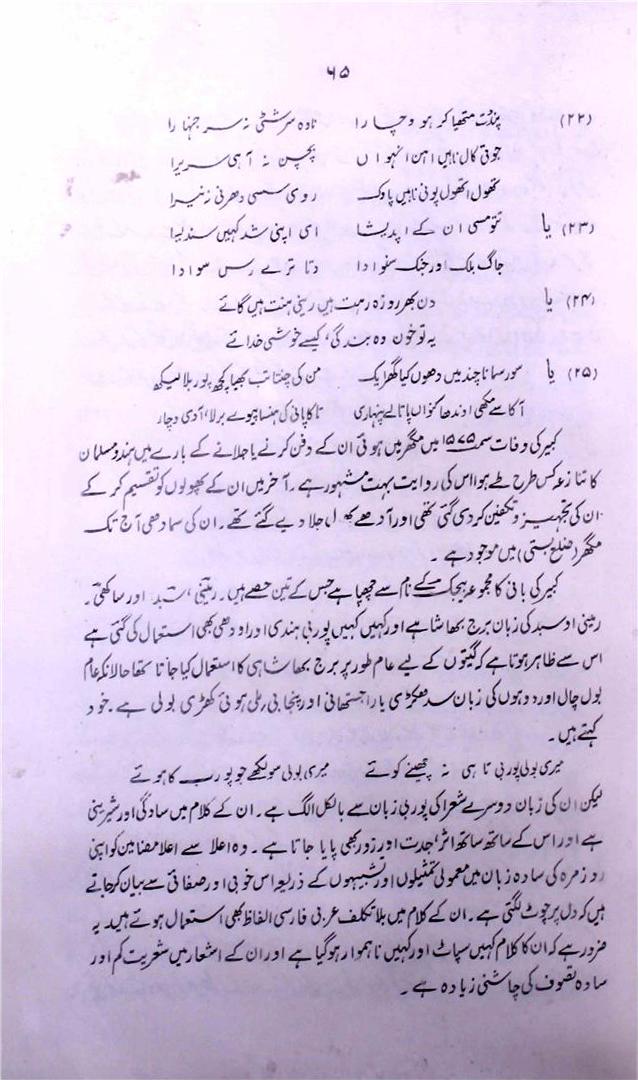 ۶۵
(۲۲) پنڈت متھیا کر ہو وچارا نا وہ سرشٹی نہ سرجنہارا
جوتی کال ناہیں اہن انہواں بچن نہ آہی سریرا
تھول استھول پونی ناہیں پاوک روی سسی دھرنی نہ نیرا
(۲۳) یا تتومسی ان کے اپدیشا ای اپنی شد کہیں سندیسا
جاگ بلک اور جنک سنوادا دتا ترے رس سوادا
(۲۴) یا دن بھر روزہ رہت ہیں رینی ہنت ہیں گائے
یہ تو خون وہ بندگی، کیسے خوشی خدائے
(۲۵) یا سور سمانا چند میں دھوں کیا گھر ایک من کی چنتا تب بھیا کچھ پور بلا لیکھ
آکاسے مکھی اوندھا کنواں پاتالے پنہاری تاکا پانی کی ہنسا پیوے برلا، آدی وچار
کبیر کی وفات سمت ۱۵۷۵ میں مگہر میں ہوئی ان کے دفن کرنے یا جلانے کے بارے میں ہندو مسلمان
کا تنازعہ کس طرح طے ہوا اس کی روایت بہت مشہور ہے۔ آخر میں ان کے پھولوں کو تقسیم کر کے
ان کی تجہیز و تکفین کر دی گئی تھی اور آدھے پھول جلا دیے گئے تھے۔ ان کی سمادھی آج تک
مگہر (ضلع بستی) میں موجود ہے۔
کبیر کی بانی کا مجموعہ بیجک کے نام سے چھپا ہے جس کے تین حصے ہیں۔ رمینی، سبد اور ساکھی۔
رمینی اور سبد کی زبان برج بھاشا ہے اور کہیں کہیں پوربی ہندی اور اودھی بھی استعمال کی گئی ہے
اس سے ظاہر ہوتا ہے کہ گیتوں کے لیے عام طور پر برج بھاشا ہی کا استعمال کیا جاتا تھا حالانکہ عام
بول چال اور دوہوں کی زبان سدھکڑی یا راجستھانی اور پنجابی ملی ہوئی کھڑی بولی ہے۔ خود
کہتے ہیں۔
میری بولی پوربی تاہی نہ چھینے کوئے میری بولی سو لکھے جو پورب کا ہوئے
لیکن ان کی زبان دوسرے شعرا کی پوربی زبان سے بالکل الگ ہے۔ ان کے کلام میں سادگی اور شیرینی
ہے اور اس کے ساتھ ساتھ اثر، جدت اور زور بھی پایا جاتا ہے۔ وہ اعلا سے اعلا مضامین کو اپنی
روزمرہ کی سادہ زبان میں معمولی تمثیلوں اور تشبیہوں کے ذریعہ اس خوبی اور صفائی سے بیان کر جاتے
ہیں کہ دل پر چوٹ لگتی ہے۔ ان کے کلام میں بلا تکلف عربی فارسی الفاظ بھی استعمال ہوتے ہیں۔ یہ
ضرور ہے کہ ان کا کلام کہیں سپاٹ اور کہیں ناہموار ہو گیا ہے اور ان کے اشعار میں شعریت کم اور
سادہ تصوف کی چاشنی زیادہ ہے۔